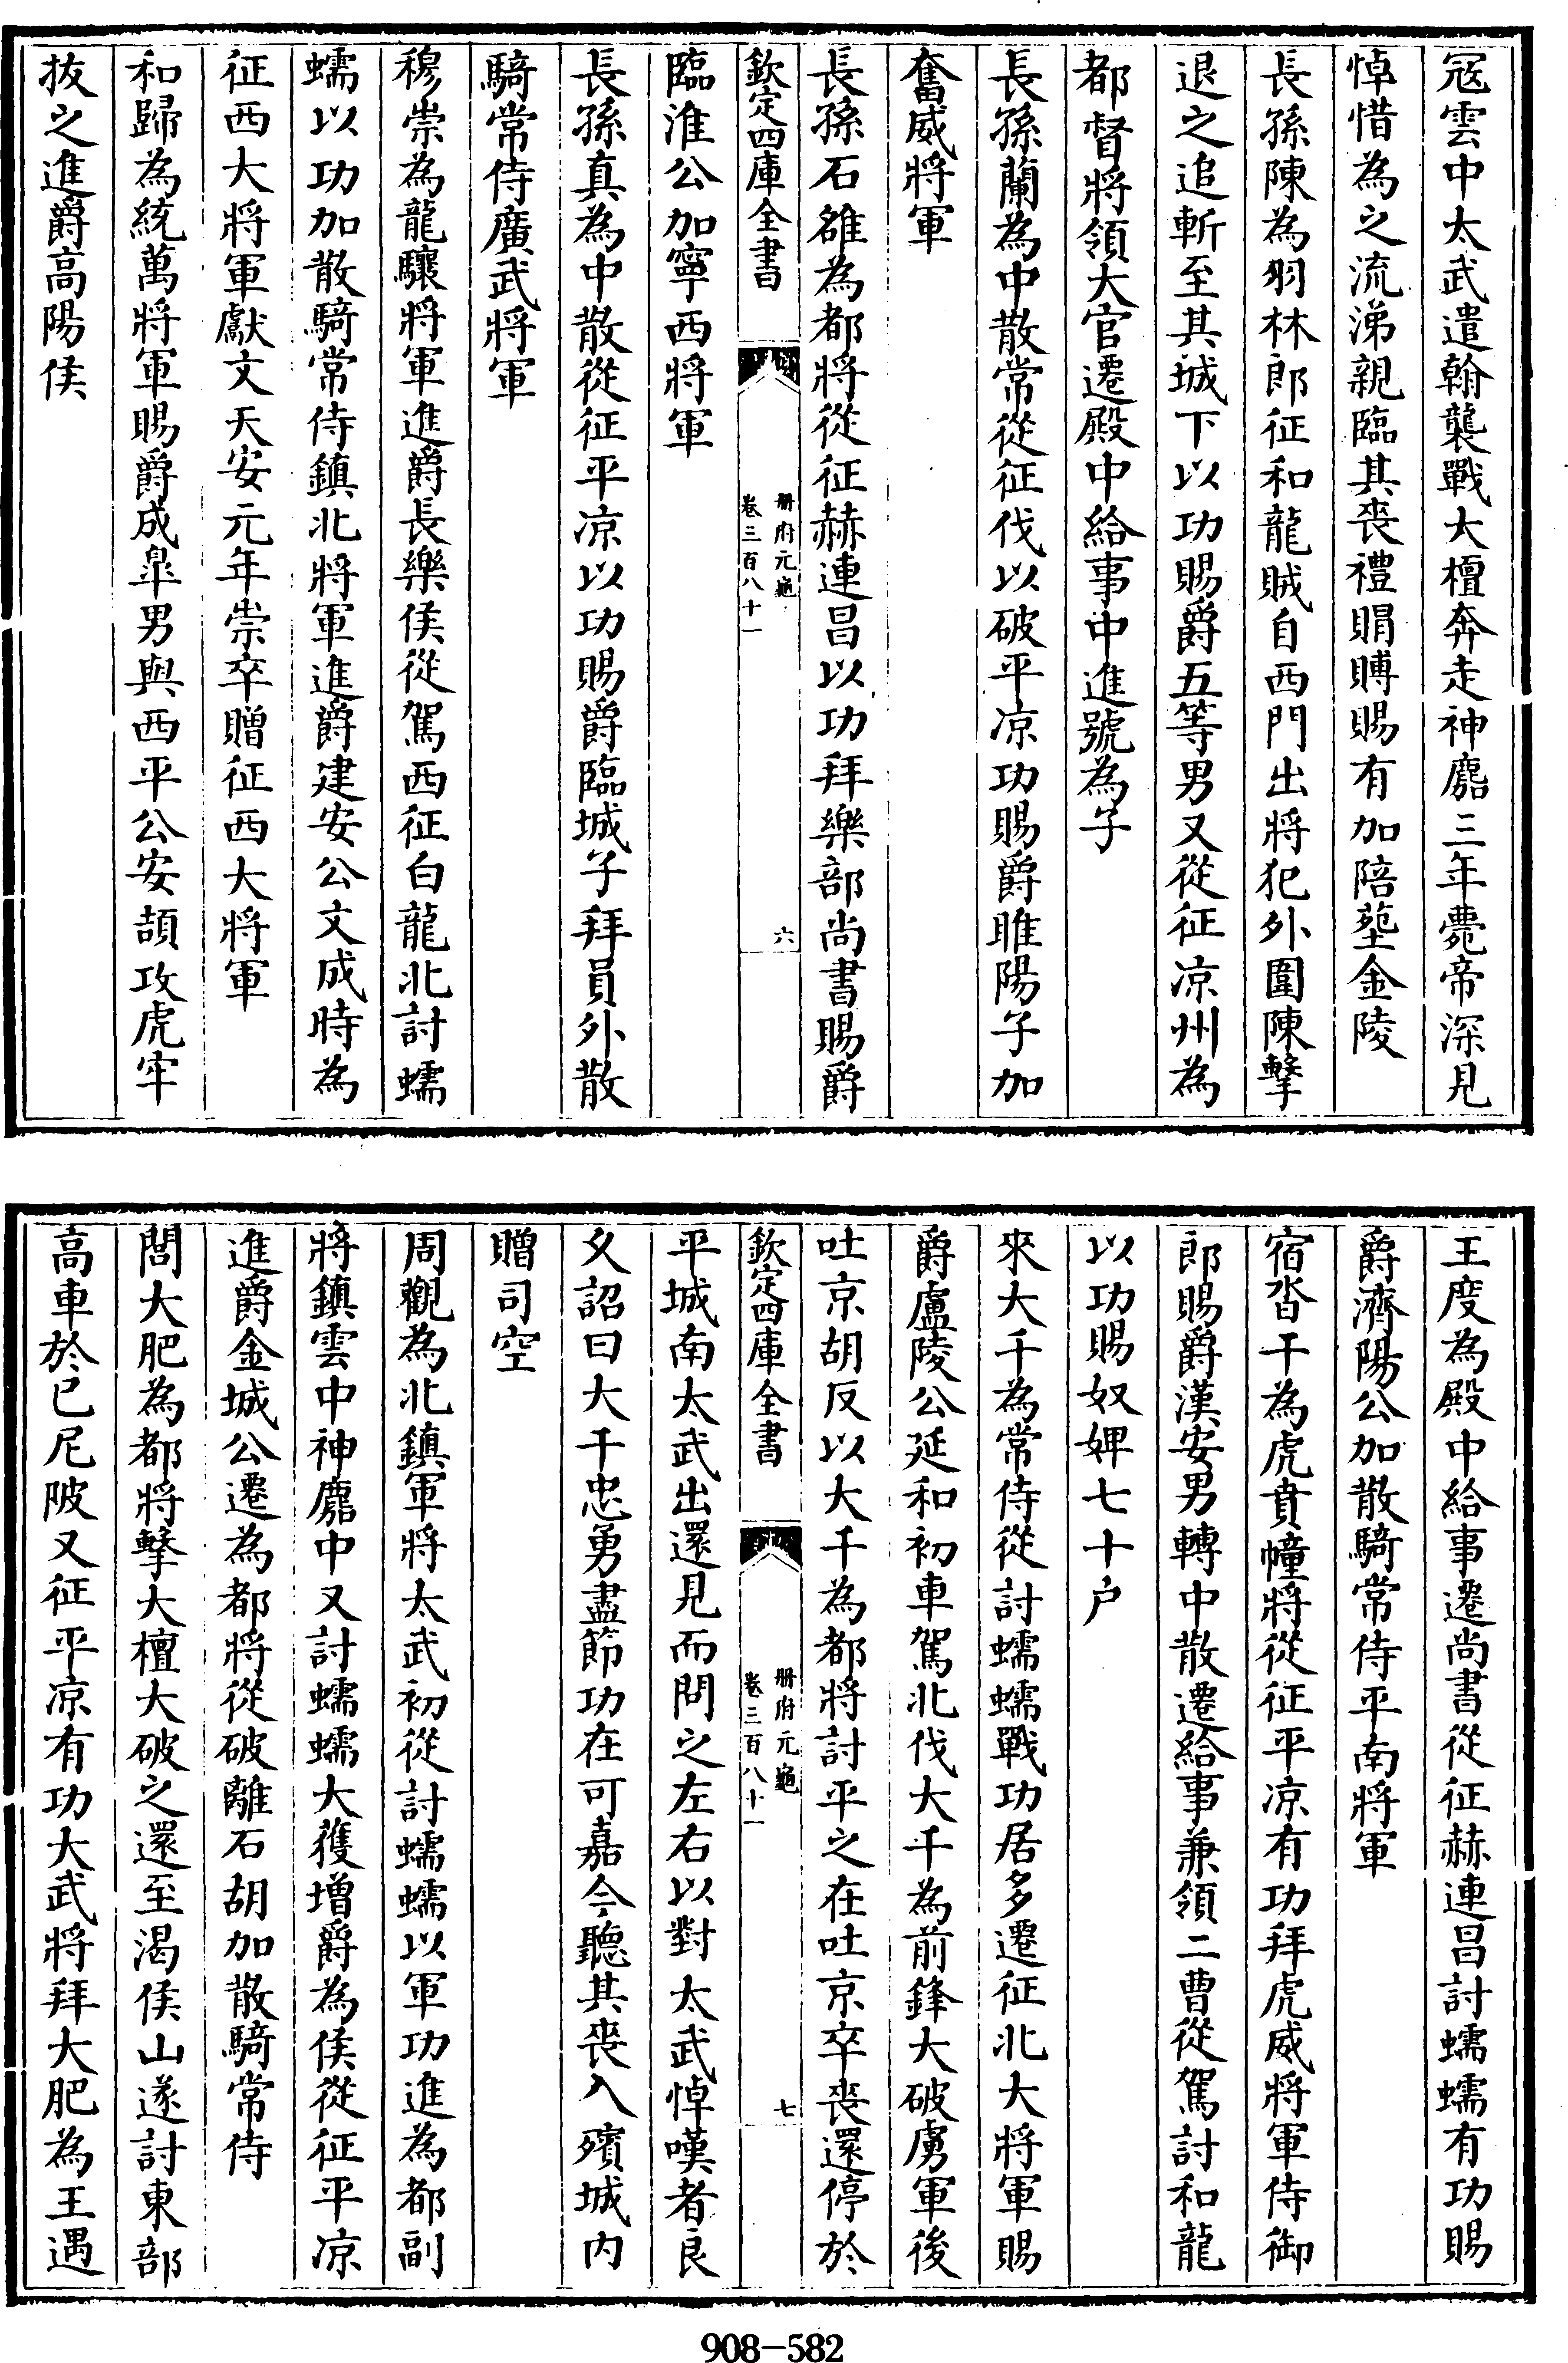 冦雲中太武遣翰襲戰大檀奔走神䴥三年薨帝深見
悼惜為之流涕親臨其喪禮賵賻賜有加陪塟金陵
長孫陳為羽林郎征和龍賊自西門出將犯外圍陳擊
退之追斬至其城下以功賜爵五等男又從征凉州為
都督將領大官遷殿中給事中進號為子
長孫蘭為中散常從征伐以破平凉功賜爵睢陽子加
奮威將軍
長孫石雒為都將從征赫連昌以功拜樂部尚書賜爵
欽定四庫全書
册府元龜
卷三百八十一
六
臨淮公加寧西將軍
長孫真為中散從征平凉以功賜爵臨城子拜員外散
騎常侍廣武將軍
穆崇為龍驤將軍進爵長樂侯從駕西征白龍北討蠕
蠕以功加散騎常侍鎮北將軍進爵建安公文成時為
征西大將軍獻文天安元年崇卒贈征西大將軍
和歸為統萬將軍賜爵成臯男與西平公安頡攻虎牢
拔之進爵高陽侯
王度為殿中給事遷尚書從征赫連昌討蠕蠕有功賜
爵濟陽公加散騎常侍平南將軍
宿沓干為虎賁幢將從征平凉有功拜虎威將軍侍御
郎賜爵漢安男轉中散遷給事兼領二曹從駕討和龍
以功賜奴婢七十户
來大千為常侍從討蠕蠕戰功居多遷征北大將軍賜
爵盧陵公延和初車駕北伐大千為前鋒大破虜軍後
吐京胡反以大千為都將討平之在吐京卒喪還停於
欽定四庫全書
册府元龜
卷三百八十一
七
平城南太武出還見而問之左右以對太武悼嘆者良
乆詔曰大千忠勇盡節功在可嘉今聽其喪入殯城内
贈司空
周觀為北鎮軍將太武初從討蠕蠕以軍功進為都副
將鎮雲中神䴥中又討蠕蠕大獲增爵為侯從征平凉
進爵金城公遷為都將從破離石胡加散騎常侍
閭大肥為都將擊大檀大破之還至渴侯山遂討東部
高車於已尼陂又征平凉有功大武將拜大肥為王遇
908-582